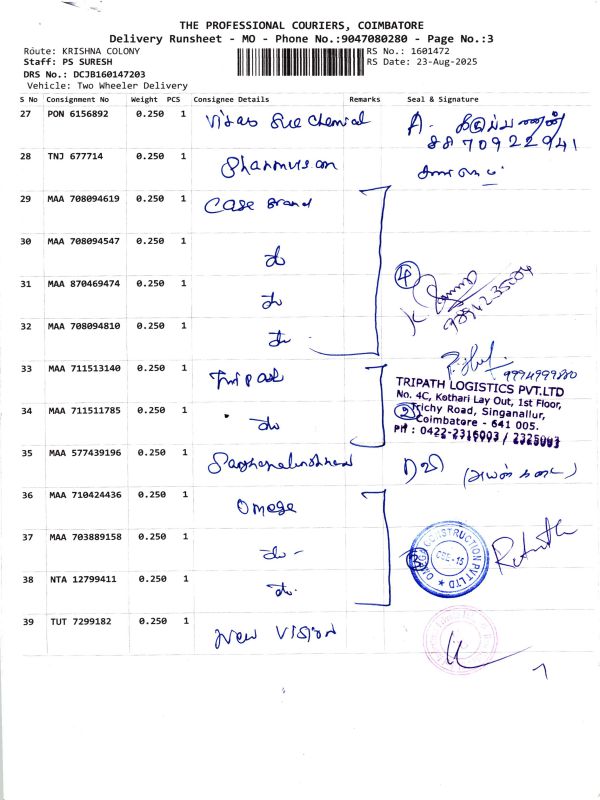 THE PROFESSIONAL COURIERS, COIMBATORE
Delivery Runsheet - MO - Phone No.:9047080280 - Page No.:3
Route: KRISHNA COLONY RS No.: 1601472
Staff: PS SURESH RS Date: 23-Aug-2025
DRS No.: DCJB160147203
Vehicle: Two Wheeler Delivery
S No Consignment No Weight PCS Consignee Details Remarks Seal & Signature
27 PON 6156892 0.250 1 Chemical A.
8870922941
28 TNJ 677714 0.250 1
29 MAA 708094619 0.250 1 Case Brand
30 MAA 708094547 0.250 1 do
4
31 MAA 870469474 0.250 1 do
32 MAA 708094810 0.250 1 do
33 MAA 711513140 0.250 1 Tripath
TRIPATH LOGISTICS PVT.LTD
No. 4C, Kothari Lay Out, 1st Floor,
34 MAA 711511785 0.250 1 do 2 Trichy Road, Singanallur,
Coimbatore - 641 005.
PH : 0422-2316003 / 2325003
35 MAA 577439196 0.250 1
36 MAA 710424436 0.250 1 Omega
37 MAA 703889158 0.250 1 do - 3 OMEGA CONSTRUCTION PVT LTD CBE-15
38 NTA 12799411 0.250 1 do.
39 TUT 7299182 0.250 1 New Vision